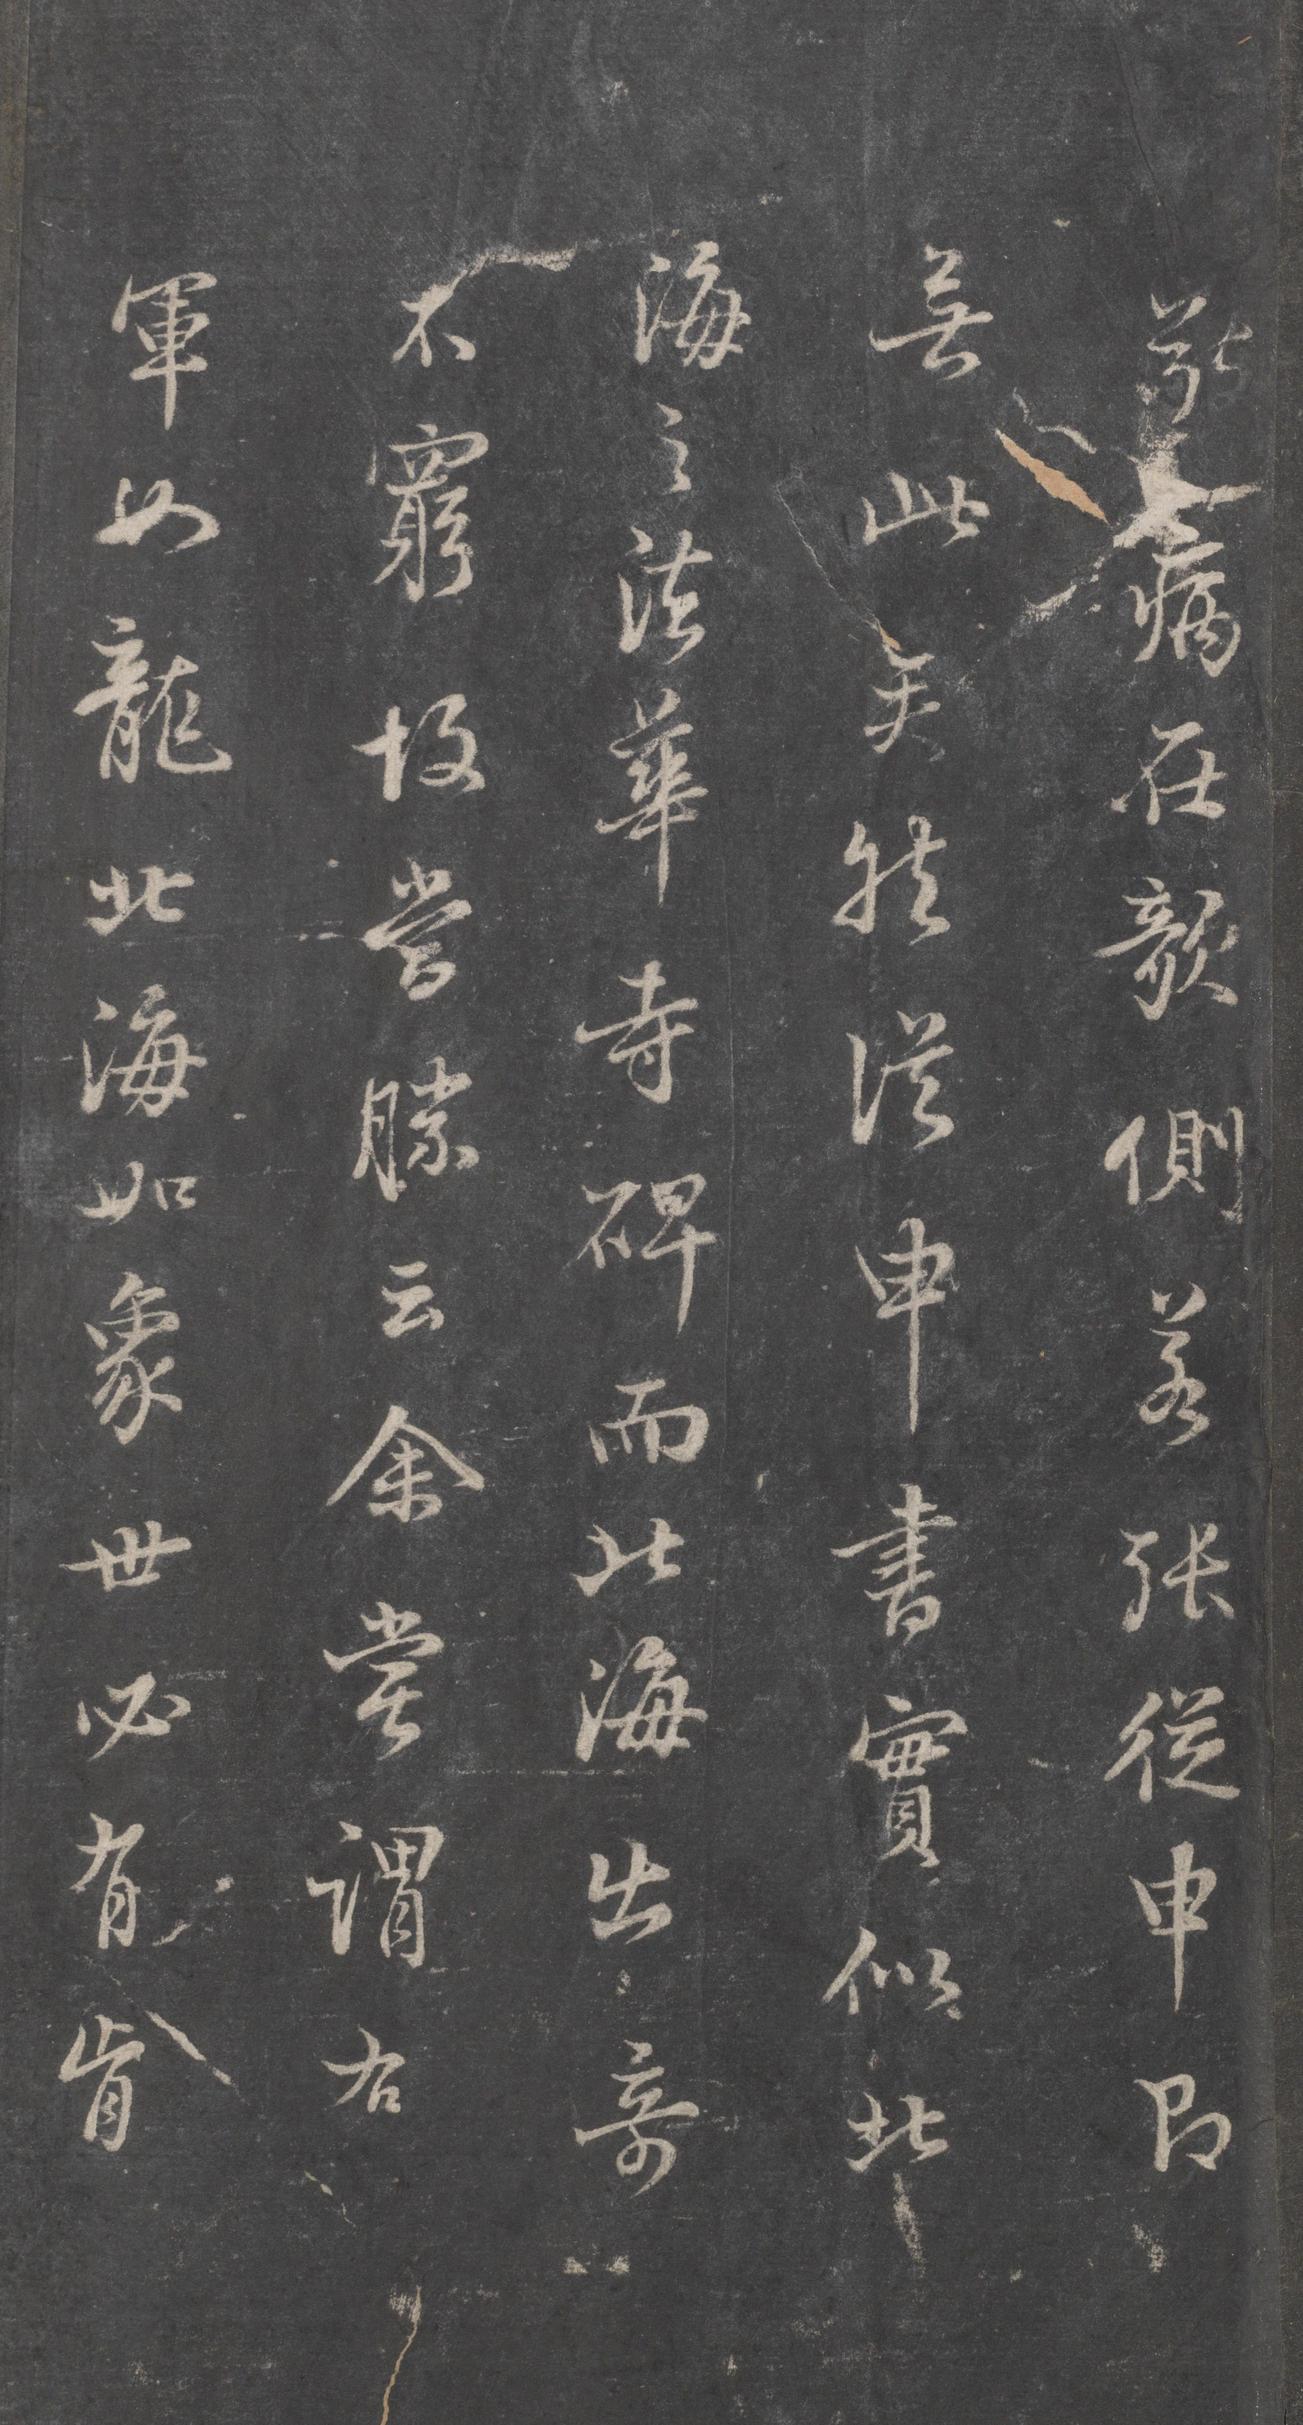 敬病在欹側若張從申即
無此矣然從申書實似北
海之法華寺碑而北海出奇
不窮故當勝云余嘗謂右
軍如龍北海如象世必有肯